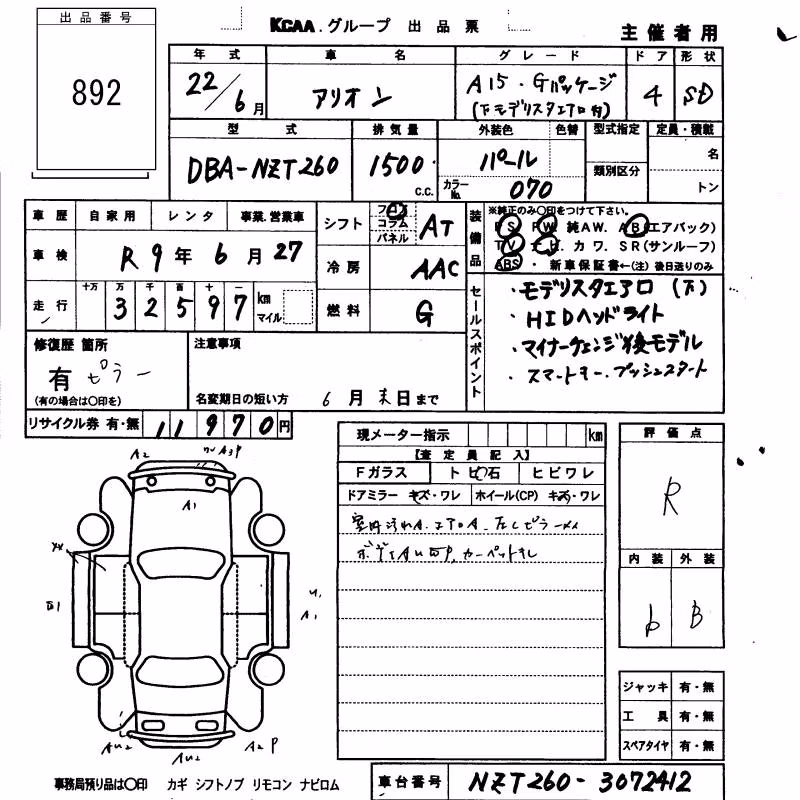 出品番号
892
KCAA.グループ 出品票
主催者用
年式 車名 グレード ドア 形状
22/6月 アリオン A15・Gパッケージ 4 SD
(下モデリスタエアロ付)
型式 排気量 外装色 色替 型式指定 定員・積載
DBA-NZT260 1500 c.c. パール
名
類別区分
カラーNo. 070
トン
車歴 自家用 レンタ 事業.営業車
車検 R9年6月27
走行 十万 万 千 百 十 一
32597 km マイル
シフト フロア コラム パネル AT
冷房 AAC
燃料 G
装備品
※純正のみ○印をつけて下さい。
PS PW 純AW. AB(エアバック)
TV ナビ. カワ. SR(サンルーフ)
ABS ・ 新車保証書←(注)後日送りのみ
セールスポイント
・モデリスタエアロ (下)
・HIDヘッドライト
・マイナーチェンジ後モデル
・スマートキー.プッシュスタート
修復歴 箇所
有 ピラー
(有の場合は○印を)
注意事項
名変期日の短い方 6月末日まで
リサイクル券 有・無 11970円
現メーター指示 km
【査定員記入】
Fガラス トビ石 ヒビワレ
ドアミラー キズ・ワレ ホイール(CP) キズ・ワレ
室内汚れA.エアロA.左Cピラーメメ
カーペットキレ
評価点
R
内装 外装
B
ジャッキ 有・無
工具 有・無
スペアタイヤ 有・無
A2 A3P
A1
XX
A1
AU2 AU2 A2P
事務局預り品は○印 カギ シフトノブ リモコン ナビロム
車台番号 NZT260-3072412